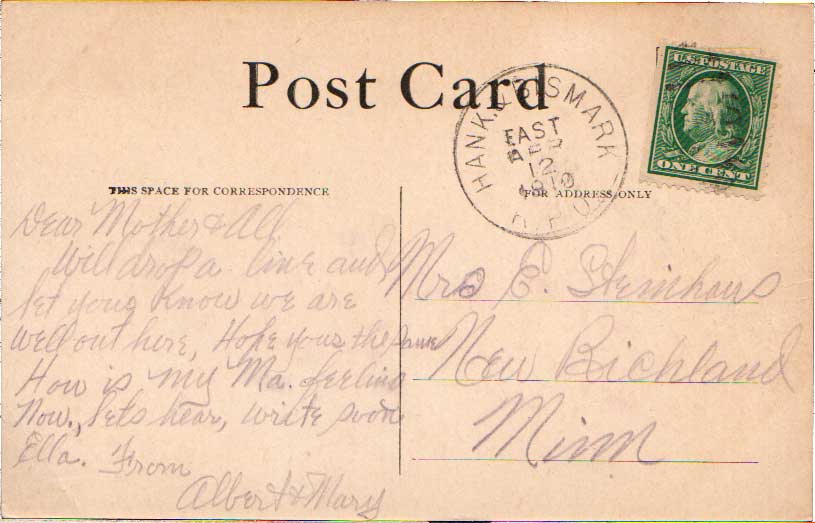 Post Card
HANK. & BISMARK
EAST
APR
12
1910
R.P.O.
U.S. POSTAGE
ONE CENT
THIS SPACE FOR CORRESPONDENCE
FOR ADDRESS ONLY
Dear Mother & All
Will drop a line and
let you know we are
well out here, Hope your the same
How is my Ma. feeling
Now., lets hear, write soon
Ella. From
Albert & Mary
Mrs E. Steinhaus
New Richland
Minn